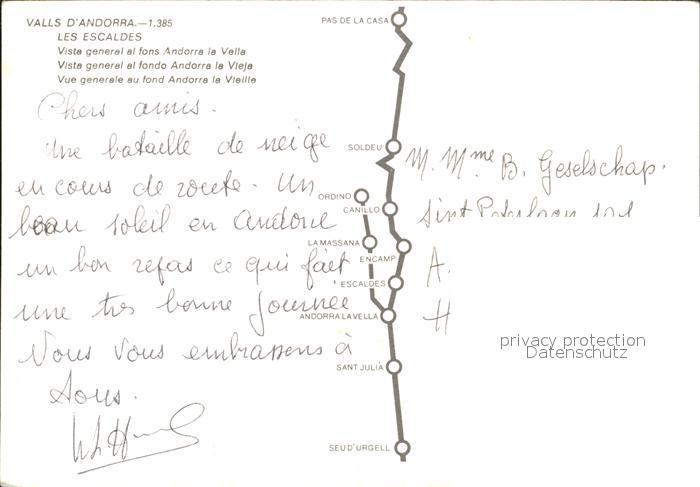 VALLS D'ANDORRA.—1.385
LES ESCALDES
Vista general al fons Andorra la Vella
Vista general al fondo Andorra la Vieja
Vue generale au fond Andorra la Vieille
Chers amis.
Une bataille de neige
en cours de route. Un
beau soleil en Andorre
un bon repas ce qui fait
une très bonne journée
Nous vous embrassons à
tous.
PAS DE LA CASA
SOLDEU
ORDINO
CANILLO
LA MASSANA
ENCAMP
ESCALDES
ANDORRA LA VELLA
SANT JULIÀ
SEU D'URGELL
M. Mme B. Geselschap.
A.
H
privacy protection
Datenschutz